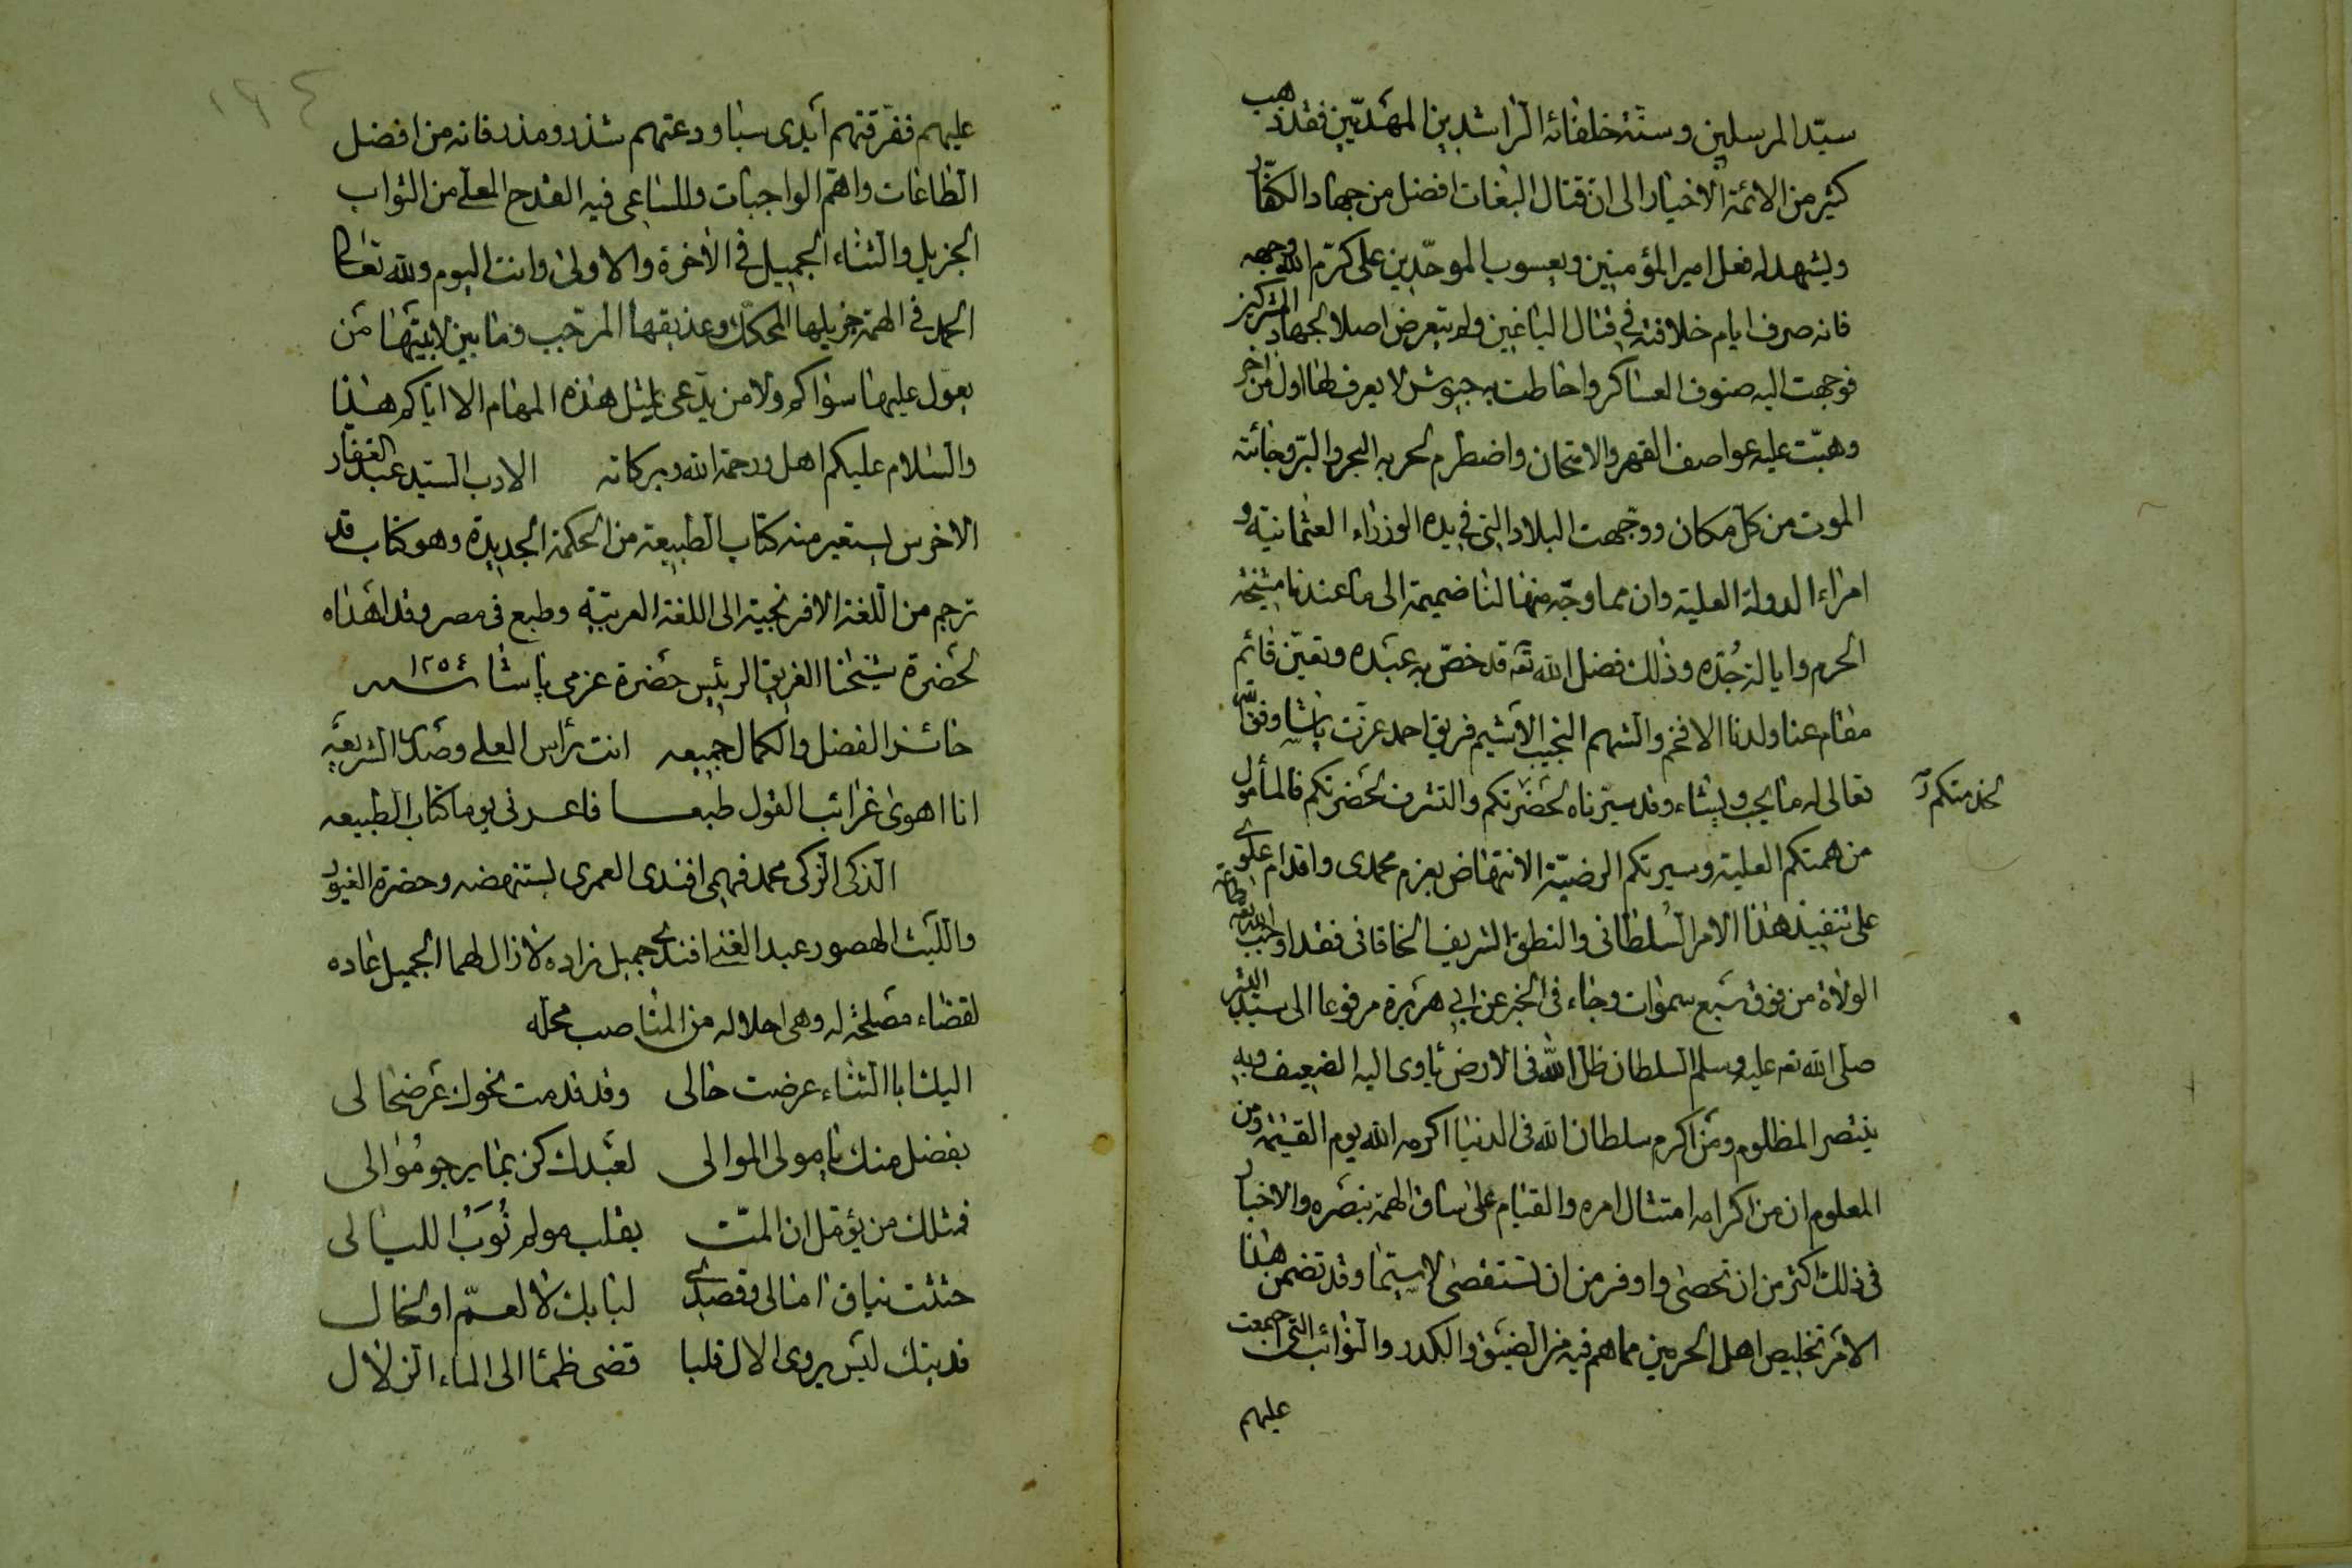 سيّد المرسلين وسنّة خلفائه الراشدين المهديّين فقد ذهب
كثير من الائمة الاخيار الى ان قتال البغات افضل من جهاد الكفّار
ويشهد له فعل امير المؤمنين ويعسوب الموحّدين على كرّم الله وجهه
فانه صرف ايام خلافته في قتال الباغين ولم يتعرض اصلا لجهاد المشركين
فوجهت اليه صنوف العساكر واحاطت به جيوش لا يعرف لها اول من آخر
وهبّت عليه عواصف القهر والامتحان واضطرم لحربه البحر والبرّ وجائته
الموت من كل مكان ووجّهت البلاد التي في يده الوزراء العثمانيّة و
امراء الدولة العلية وان مما وجّه منها لنا ضميمة الى ما عندنا مشيخة
الحرم وايالة جُدّه وذلك فضل الله تعه قد خصّ به عبده وتعيّن قائم
مقام عنا ولدنا الافخم والشهم النجيب الاشيم فريق احمد عزت پاشا وفقه الله
تعالى لما يحب ويشاء وقد سيّرناه لحضرتكم والتشرف بحضرتكم فالمأمول
لخدمتكم
من همتكم العلية وسيرتكم الرضيّة الانتهاض بعزم محمدى واقدام علوى
على تنفيذ هذا الامر السلطانى والنطق الشريف الخاقانى فقد اوجب الله تعه طاعة
الولاة من فوق سبع سموات وجاء فى الخبر عن ابي هريرة مرفوعا الى سيد البشر
صلى الله تعه عليه وسلم السلطان ظل الله فى الارض ياوى اليه الضعيف وبه
ينتصر المظلوم ومن اكرم سلطان الله فى الدنيا اكرمه الله يوم القيمة ومن
المعلوم ان من اكرامه امتثال امره والقيام على ساق الهمة بنصره والاخبار
فى ذلك اكثر من ان تحصى واوفر من ان تستقصى لاسيما وقد تضمن هذا
الامر تخليص اهل الحرمين مما هم فيه من الضيق والكدر والنوائب التى اجمعت
عليهم
١٩٤
عليهم ففرقتهم أيدى سبا ودعتهم شذر ومذر فانه من افضل
الطاعات واهمّ الواجبات وللساعى فيه القدح المعلّى من الثواب
الجزيل والثناء الجميل في الآخرة والاولى وانت اليوم ولله تعالى
الحمد فى الهمة جزيلها المحكّك وعذيقها المرجّب وما بين لابتيها من
يعوّل عليها سواكم ولا من يدّعى لمثل هذه المهام الا اياكم هذا
والسلام عليكم اهل ورحمة الله وبركاته الادب السيد عبد الغفار
الاخرس يستعير منه كتاب الطبيعة من الحكمة الجديدة وهو كتاب قد
ترجم من اللغة الافرنجية الى اللغة العربيّة وطبع فى مصر وقد اهداه
لحضرة شيخنا الفريق الرئيس حضرة عزمى پاشا ١٢٥٤ سنه
حائز الفضل والكمال جميعه انت رأس العلى وصدر الشريعه
انا اهوى غرائب القول طبعا فاعرنى يوما كتاب الطبيعه
الذكى الزكى محمد فهمى افندى العمرى يستنهضه وحضرة الغيور
والليث الهصور عبد الغنى افندى جميل زاده لا زال لهما الجميل عاده
لقضاء مصلحة له وهى احلاله من المناصب محله
اليك ابا الثناء عرضت حالى وقد قدمت نحوك عرضحالى
بفضل منك يا مولى الموالى لعبدك كن بما يرجو مُوالى
فمثلك من يؤمّل ان المّت بقلب مولم نُوَبُ الليالى
حثثت نياق امالى وقصدى لبابك لا لعمّ او لخال
فديتك ليس يروى الال قلبا قضى ظمأ الى الماء الزلال